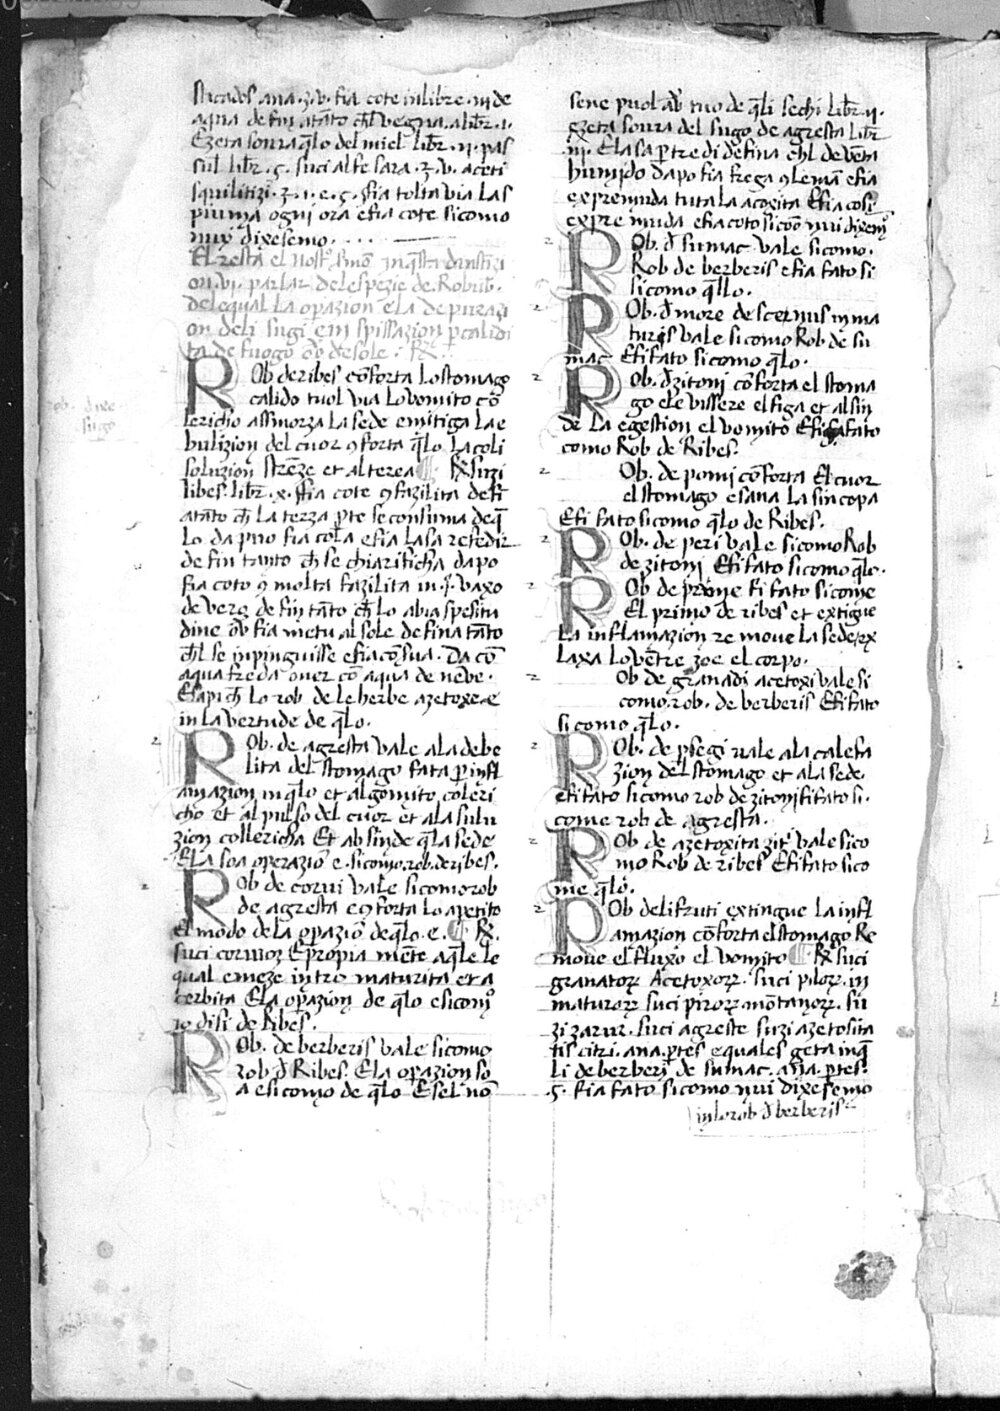 sticados ana .ʒ.v. fia cote in libre .iii. de
aqua de fin atāto ch̄l vegna a libr̄ .1.
E zeta soura q̄lo del miel libr̄ .ii. pas
sul libr̄ .ς. suci al fesara .ʒ.v. aceti
squilitizi .ʒ.1. e .ς. ffia tolta via las
piuma ogni ora e fia cote sicomo
nuy dixesemo.
El resta el nostr̄
on .vi. parlar de le spezie de Robub.
del equal la opazion ela depurazi
on deli sugi e inspissazion p calidi
ta de fuogo ōb de sole : ℞.
Rob de ribes cōforta lo stomago
calido tuol via lo vomito co
lericho assmorza la sede e mitiga la e
bulizion del cuor ꝯforta q̄lo la coli
soluzion strēze et alterea ¶ ℞ suzi
libes. libr̄ .x. ffia cote ꝯ fazilita de fī
atāto ch̄ la terza pte se consuma de q̄
lo da puo fia cola e fia lasa resedir
de fin tanto ch̄ se chiarificha dapo
fia coto ꝯ molta fazilita in .j. vaxo
de vero de fin tāto ch̄ lo abia spesitu
dine ob fia metu al sole de fina tāto
ch̄l se inpinguisse e fia cōsua. Da cō
aqua freda over cō aqua de neve.
E sapi ch̄ lo rob de le herbe azetoxe e
in la vertude de q̄lo.
Rob. de agresta vale ala debe
lita del stomago fata p infl
amazion in q̄lo et al gomito coleri
cho et al pulso del cuor et ala sulu
zion collericha Et absinde q̄la sede
E la soa operaziō e. sicomo. rob. de ribes.
Rob de corui vale sicomo rob
de agresta e ꝯforta lo apetito
El modo de la opaziō de q̄lo. e. ¶ ℞.
suci cornioꝝ E propia mēte aq̄le le
qual emeze intre maturita et a
cerbita E la opazion de q̄lo e sicom̄
ro disi de Ribes.
Rob. de berberis vale sicomo
rob d̄ Ribes. E la opazion so
a e sicomo de q̄lo E sel nō
sene puol ab tuo de q̄li sechi libr̄ .ii.
E zeta soura del sugo de agresta libr̄
.iii. E lasa ptre di de fina ch̄l deventa
humido dapo fia frega ꝯ le man e fia
expremuda tuta la acoxita E fia cosi
expremuda e fia coto sicō nui dixem̄
Rob. d̄ sumac vale sicomo.
Rob de berberis e fia fato si
sicomo q̄llo.
Rob. d̄ more de scernus inma
turis vale sicomo Rob de su
mac E fi fato sicomo q̄lo.
Rob. d̄ zitoni cōforta el stoma
go e le vissere el figa et al sin
de la egestion el vomito E fi fato
como Rob de Ribes.
Ob. de pomi cōforta El cuor
el stomago e sana la sincopa
E fi fato sicomo q̄lo de Ribes.
Rob. de peri vale sicomo Rob
de zitoni E fi fato sicomo q̄lo.
Rob de prome fi fato sicome
El primo de ribes et extigue
La inflamazion remove la sede rx
laxa lo vētre zoe el corpo.
Ob de granadi acetoxi vale si
como. rob. de berberis E fi fato
sicomo q̄lo.
Rob. de psegi vale ala calefa
zion del stomago et ala sede.
e fi fato sicomo rob de zitoni fi fato si.
come rob de agresta.
Rob de azetoxita zitr̄ vale sico
mo Rob de ribes E fi fato sico
me q̄lo.
Rob deli fruti extingue la infl
amazion cōforta el stomago Re
move el fluxo el vomito ¶ ℞ suci
granatoꝝ Acetoxoꝝ. suci piloꝝ. in
maturoꝝ suci piroꝝ. mōtanoꝝ. su
zi zarur. suci agreste suzi azetosita
tis citri. ana. ptes equales geta inq̄
li de berberi de sumac. ana. ptes.
.ς. fia fato sicomo nui dixesemo
in lo rob d̄ berberis